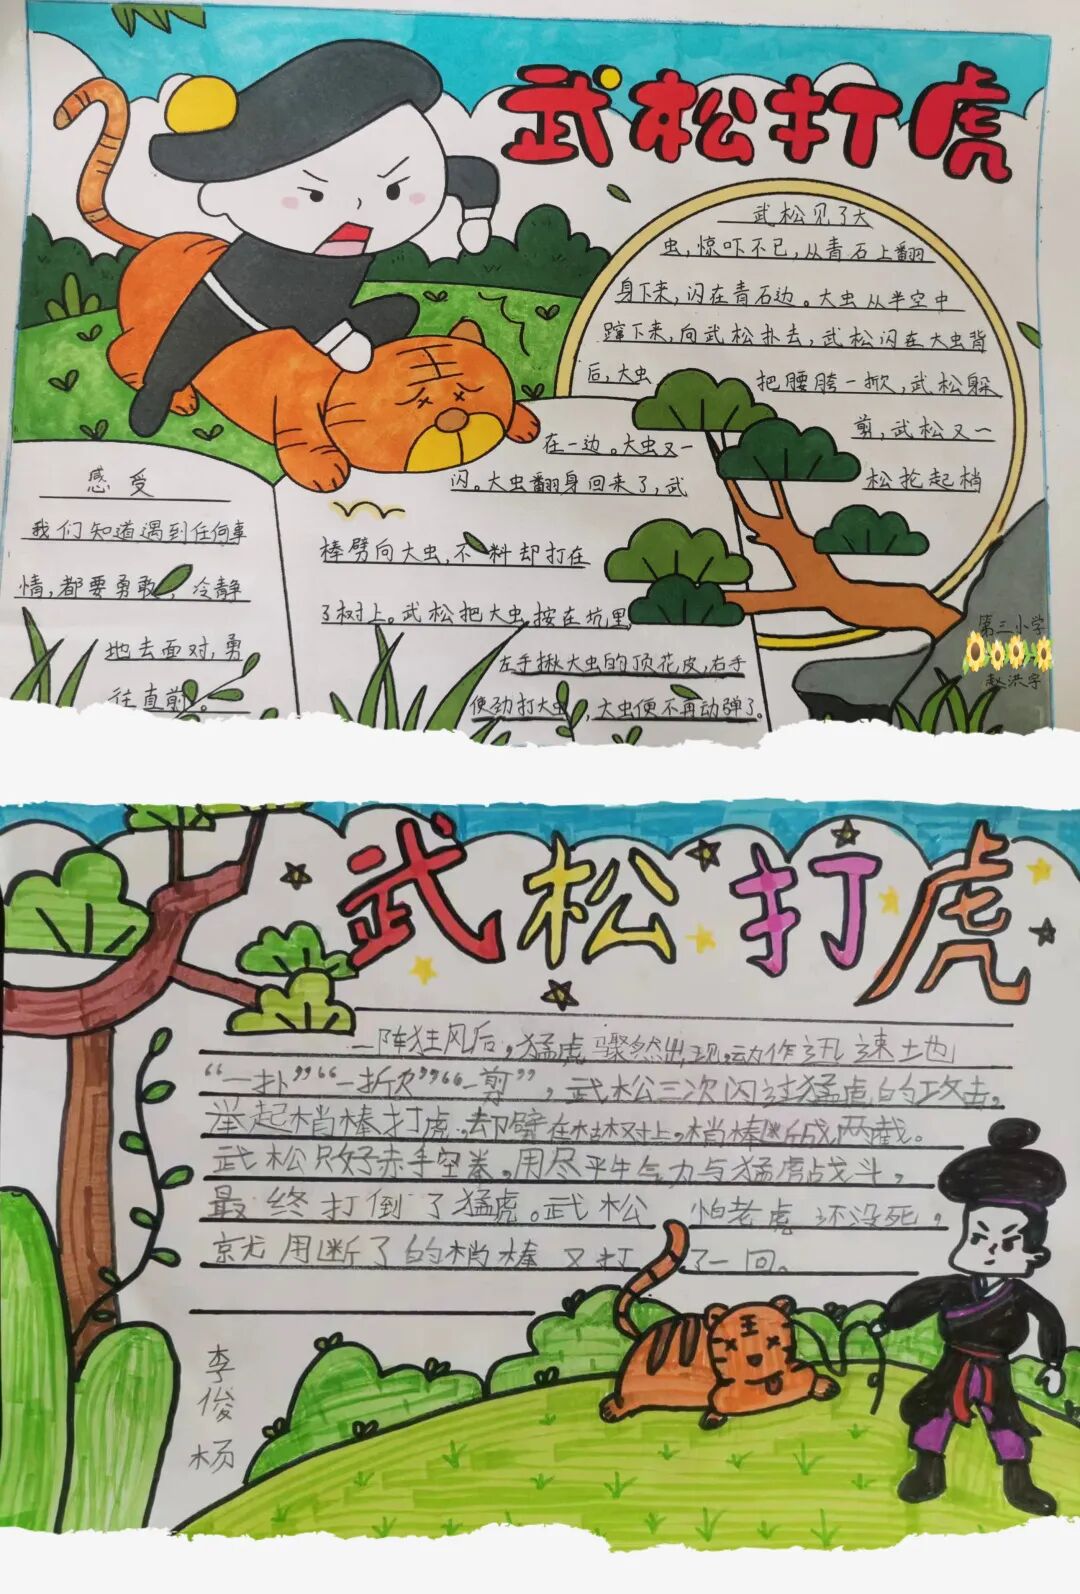 武松打虎
武松见了大
虫,惊吓不已,从青石上翻
身下来,闪在青石边。大虫从半空中
蹿下来,向武松扑去,武松闪在大虫背
后,大虫 把腰胯一掀,武松躲
在一边。大虫又一 剪,武松又一
闪。大虫翻身回来了,武 松抡起梢
棒劈向大虫,不料却打在
了树上。武松把大虫按在坑里
左手揪大虫的顶花皮,右手
使劲打大虫,大虫便不再动弹了。
感受
我们知道遇到任何事
情,都要勇敢,冷静
地去面对,勇
往直前。
第三小学
赵洪宇
武松打虎
一阵狂风后,猛虎骤然出现,动作迅速地
“一扑”“一掀”“一剪”,武松三次闪过猛虎的攻击。
举起梢棒打虎,却劈在枯树上,梢棒断成两截。
武松只好赤手空拳。用尽平生气力与猛虎战斗,
最终打倒了猛虎。武松 怕老虎还没死,
就用断了的梢棒又打 了一回。
李俊杨